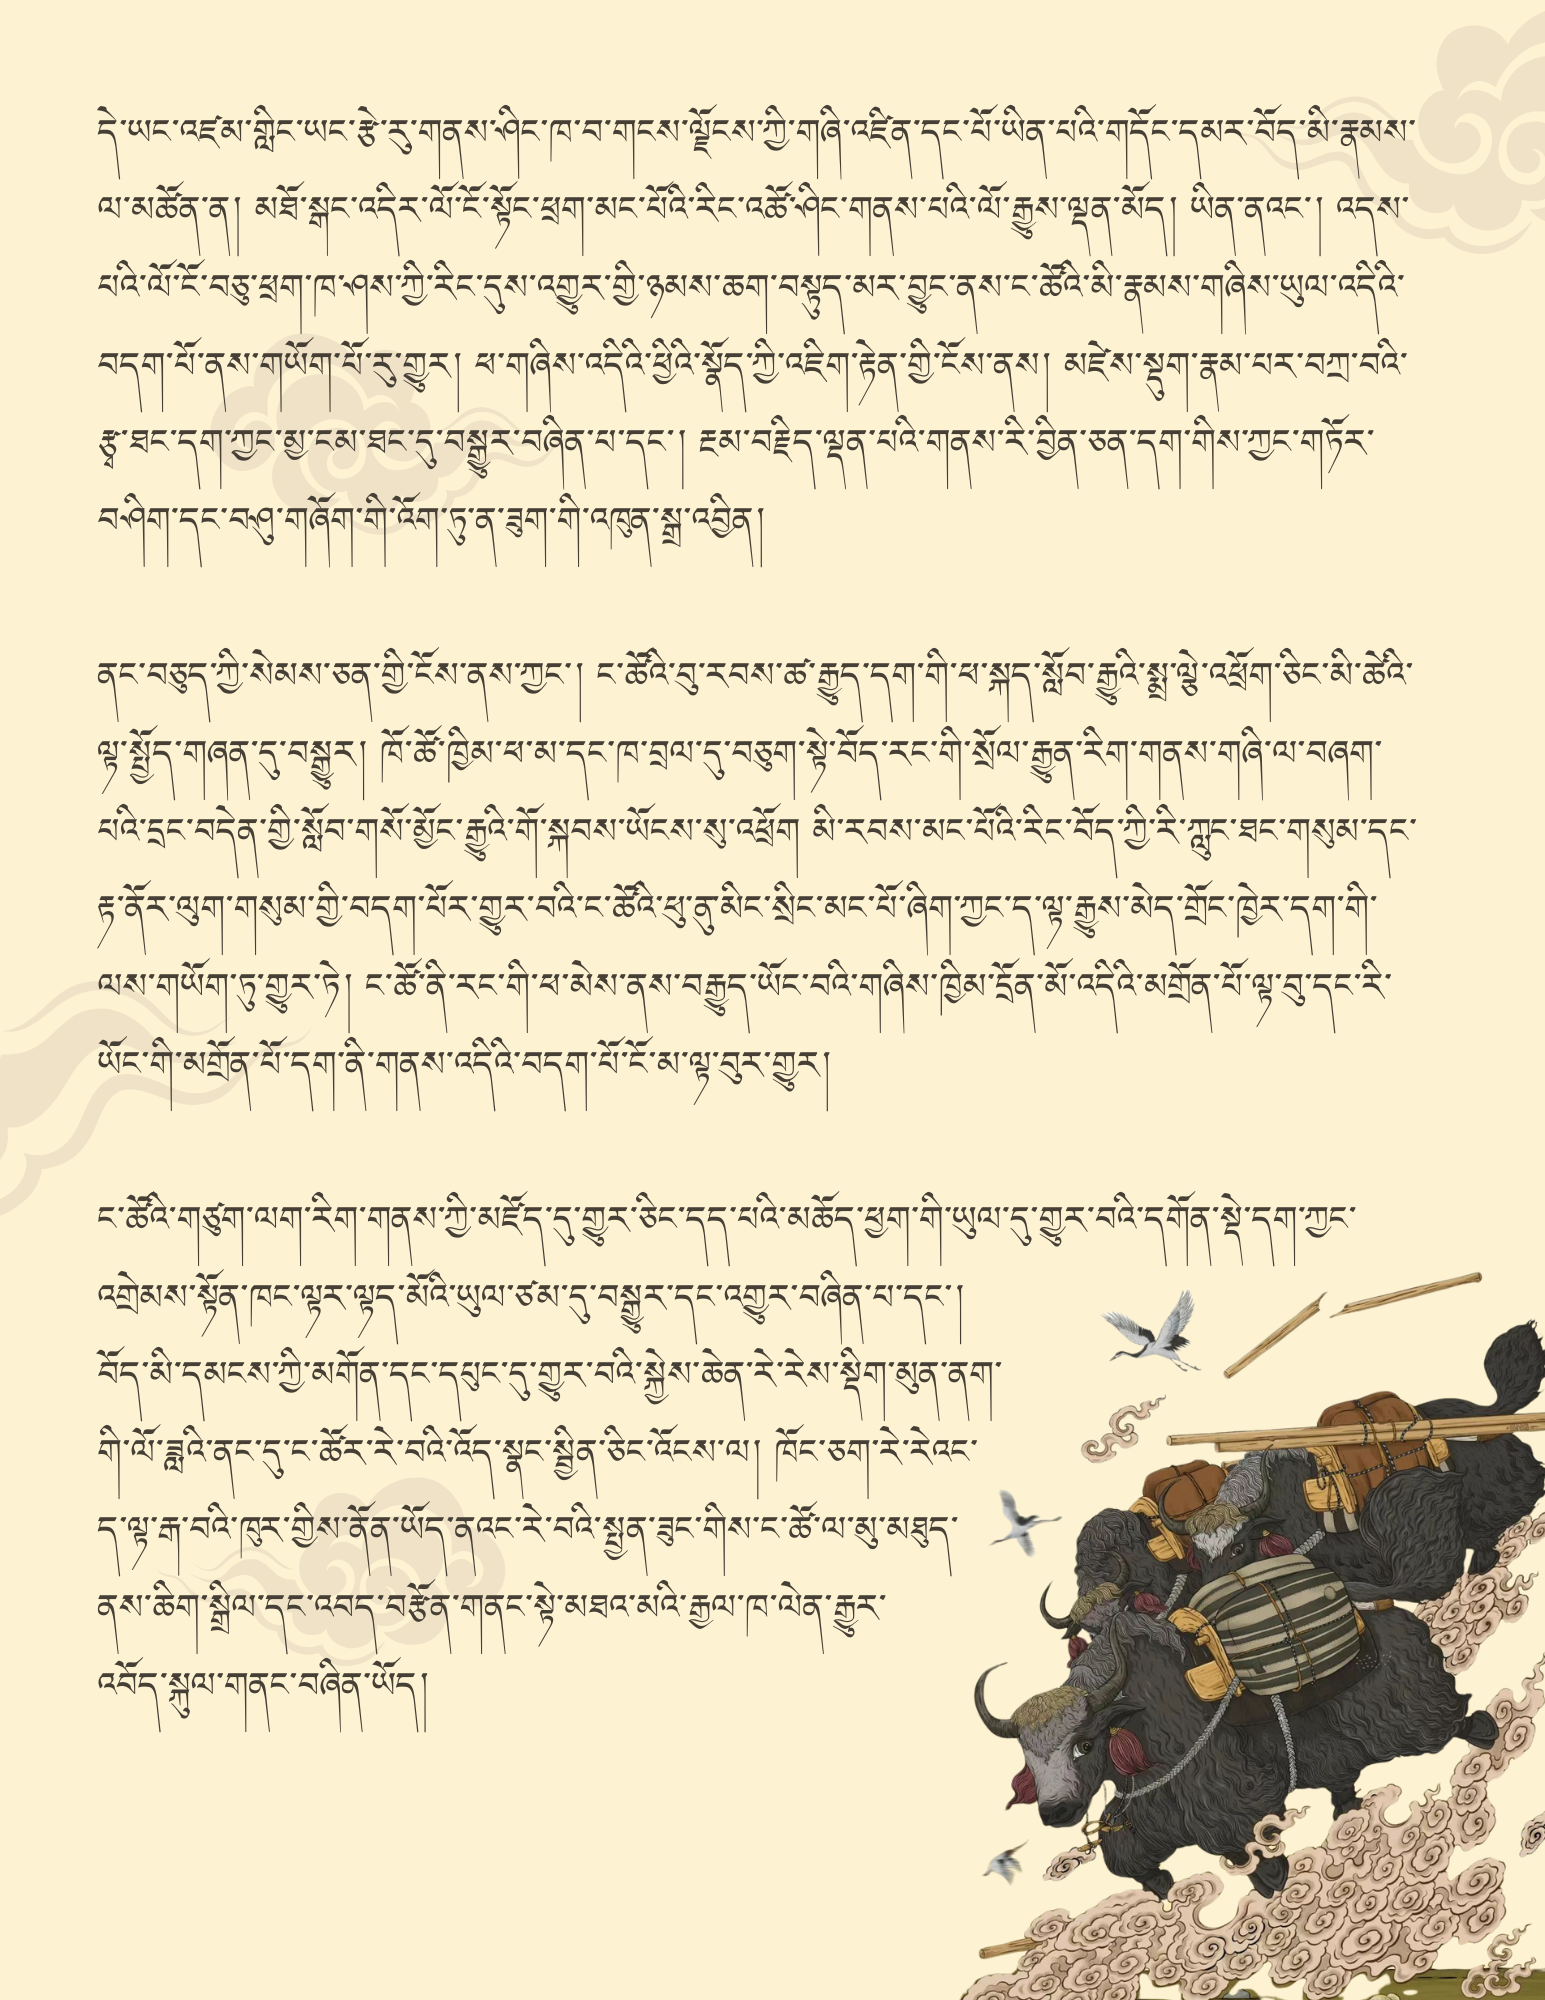 དེ་ཡང་འཛམ་གླིང་ཡང་རྩེ་རུ་གནས་ཤིང་ཁ་བ་གངས་ལྗོངས་ཀྱི་གཞི་འཛིན་དང་པོ་ཡིན་པའི་གདོང་དམར་བོད་མི་རྣམས་
ལ་མཚོན་ན། མཐོ་སྒང་འདིར་ལོ་ངོ་སྟོང་ཕྲག་མང་པོའི་རིང་འཚོ་ཤིང་གནས་པའི་ལོ་རྒྱུས་ལྡན་མོད། ཡིན་ནའང་། འདས་
པའི་ལོ་ངོ་བཅུ་ཕྲག་ཁ་ཤས་ཀྱི་རིང་དུས་འགྱུར་གྱི་ཉམས་ཆག་བསྟུད་མར་བྱུང་ནས་ང་ཚོའི་མི་རྣམས་གཞིས་ཡུལ་འདིའི་
བདག་པོ་ནས་གཡོག་པོ་རུ་གྱུར། ཕ་གཞིས་འདིའི་ཕྱིའི་སྣོད་ཀྱི་འཇིག་རྟེན་གྱི་ངོས་ནས། མཛེས་སྡུག་རྣམ་པར་བཀྲ་བའི་
རྩྭ་ཐང་དག་ཀྱང་མྱ་ངམ་ཐང་དུ་བསྒྱུར་བཞིན་པ་དང་། ངམ་བརྗིད་ལྡན་པའི་གནས་རི་བྱིན་ཅན་དག་གིས་ཀྱང་གཏོར་
བཤིག་དང་བཤུ་གཞོག་གི་འོག་ཏུ་ན་ཟུག་གི་འཁུན་སྒྲ་འབྱིན།
ནང་བཅུད་ཀྱི་སེམས་ཅན་གྱི་ངོས་ནས་ཀྱང་། ང་ཚོའི་བུ་རབས་ཚ་རྒྱུད་དག་གི་ཕ་སྐད་སློབ་རྒྱུའི་སྨྲ་ལྕེ་འཕྲོག་ཅིང་མི་ཚེའི་
ལྟ་སྤྱོད་གཞན་དུ་བསྒྱུར། ཁོ་ཚོ་ཁྱིམ་ཕ་མ་དང་ཁ་བྲལ་དུ་བཅུག་སྟེ་བོད་རང་གི་སྲོལ་རྒྱུན་རིག་གནས་གཞི་ལ་བཞག་
པའི་དྲང་བདེན་གྱི་སློབ་གསོ་མྱོང་རྒྱུའི་གོ་སྐབས་ཡོངས་སུ་འཕྲོག མི་རབས་མང་པོའི་རིང་བོད་ཀྱི་རི་ཀླུང་ཐང་གསུམ་དང་
རྟ་ནོར་ལུག་གསུམ་གྱི་བདག་པོར་གྱུར་བའི་ང་ཚོའི་ཕུ་ནུ་མིང་སྲིང་མང་པོ་ཞིག་ཀྱང་ད་ལྟ་རྒྱུས་མེད་གྲོང་ཁྱེར་དག་གི་
ལས་གཡོག་ཏུ་གྱུར་ཏེ། ང་ཚོ་ནི་རང་གི་ཕ་མེས་ནས་བརྒྱུད་ཡོང་བའི་གཞིས་ཁྱིམ་དྲོན་མོ་འདིའི་མགྲོན་པོ་ལྟ་བུ་དང་རི་
ཡོང་གི་མགྲོན་པོ་དག་ནི་གནས་འདིའི་བདག་པོ་ངོ་མ་ལྟ་བུར་གྱུར།
ང་ཚོའི་གཙུག་ལག་རིག་གནས་ཀྱི་མཛོད་དུ་གྱུར་ཅིང་དད་པའི་མཆོད་ཕྱག་གི་ཡུལ་དུ་གྱུར་བའི་དགོན་སྡེ་དག་ཀྱང་
འགྲེམས་སྟོན་ཁང་ལྟར་ལྟད་མོའི་ཡུལ་ཙམ་དུ་བསྒྱུར་དང་འགྱུར་བཞིན་པ་དང་།
བོད་མི་དམངས་ཀྱི་མགོན་དང་དཔུང་དུ་གྱུར་བའི་སྐྱེས་ཆེན་རེ་རེས་སྡིག་མུན་ནག་
གི་ལོ་ཟླའི་ནང་དུ་ང་ཚོར་རེ་བའི་འོད་སྣང་སྦྱིན་ཅིང་འོངས་ལ། ཁོང་ཅག་རེ་རེའང་
ད་ལྟ་རྒ་བའི་ཁུར་གྱིས་ནོན་ཡོད་ནའང་རེ་བའི་སྤྱན་ཟུང་གིས་ང་ཚོ་ལ་མུ་མཐུད་
ནས་ཆིག་སྒྲིལ་དང་འབད་བརྩོན་གནང་སྟེ་མཐའ་མའི་རྒྱལ་ཁ་ལེན་རྒྱུར་
འབོད་སྐུལ་གནང་བཞིན་ཡོད།